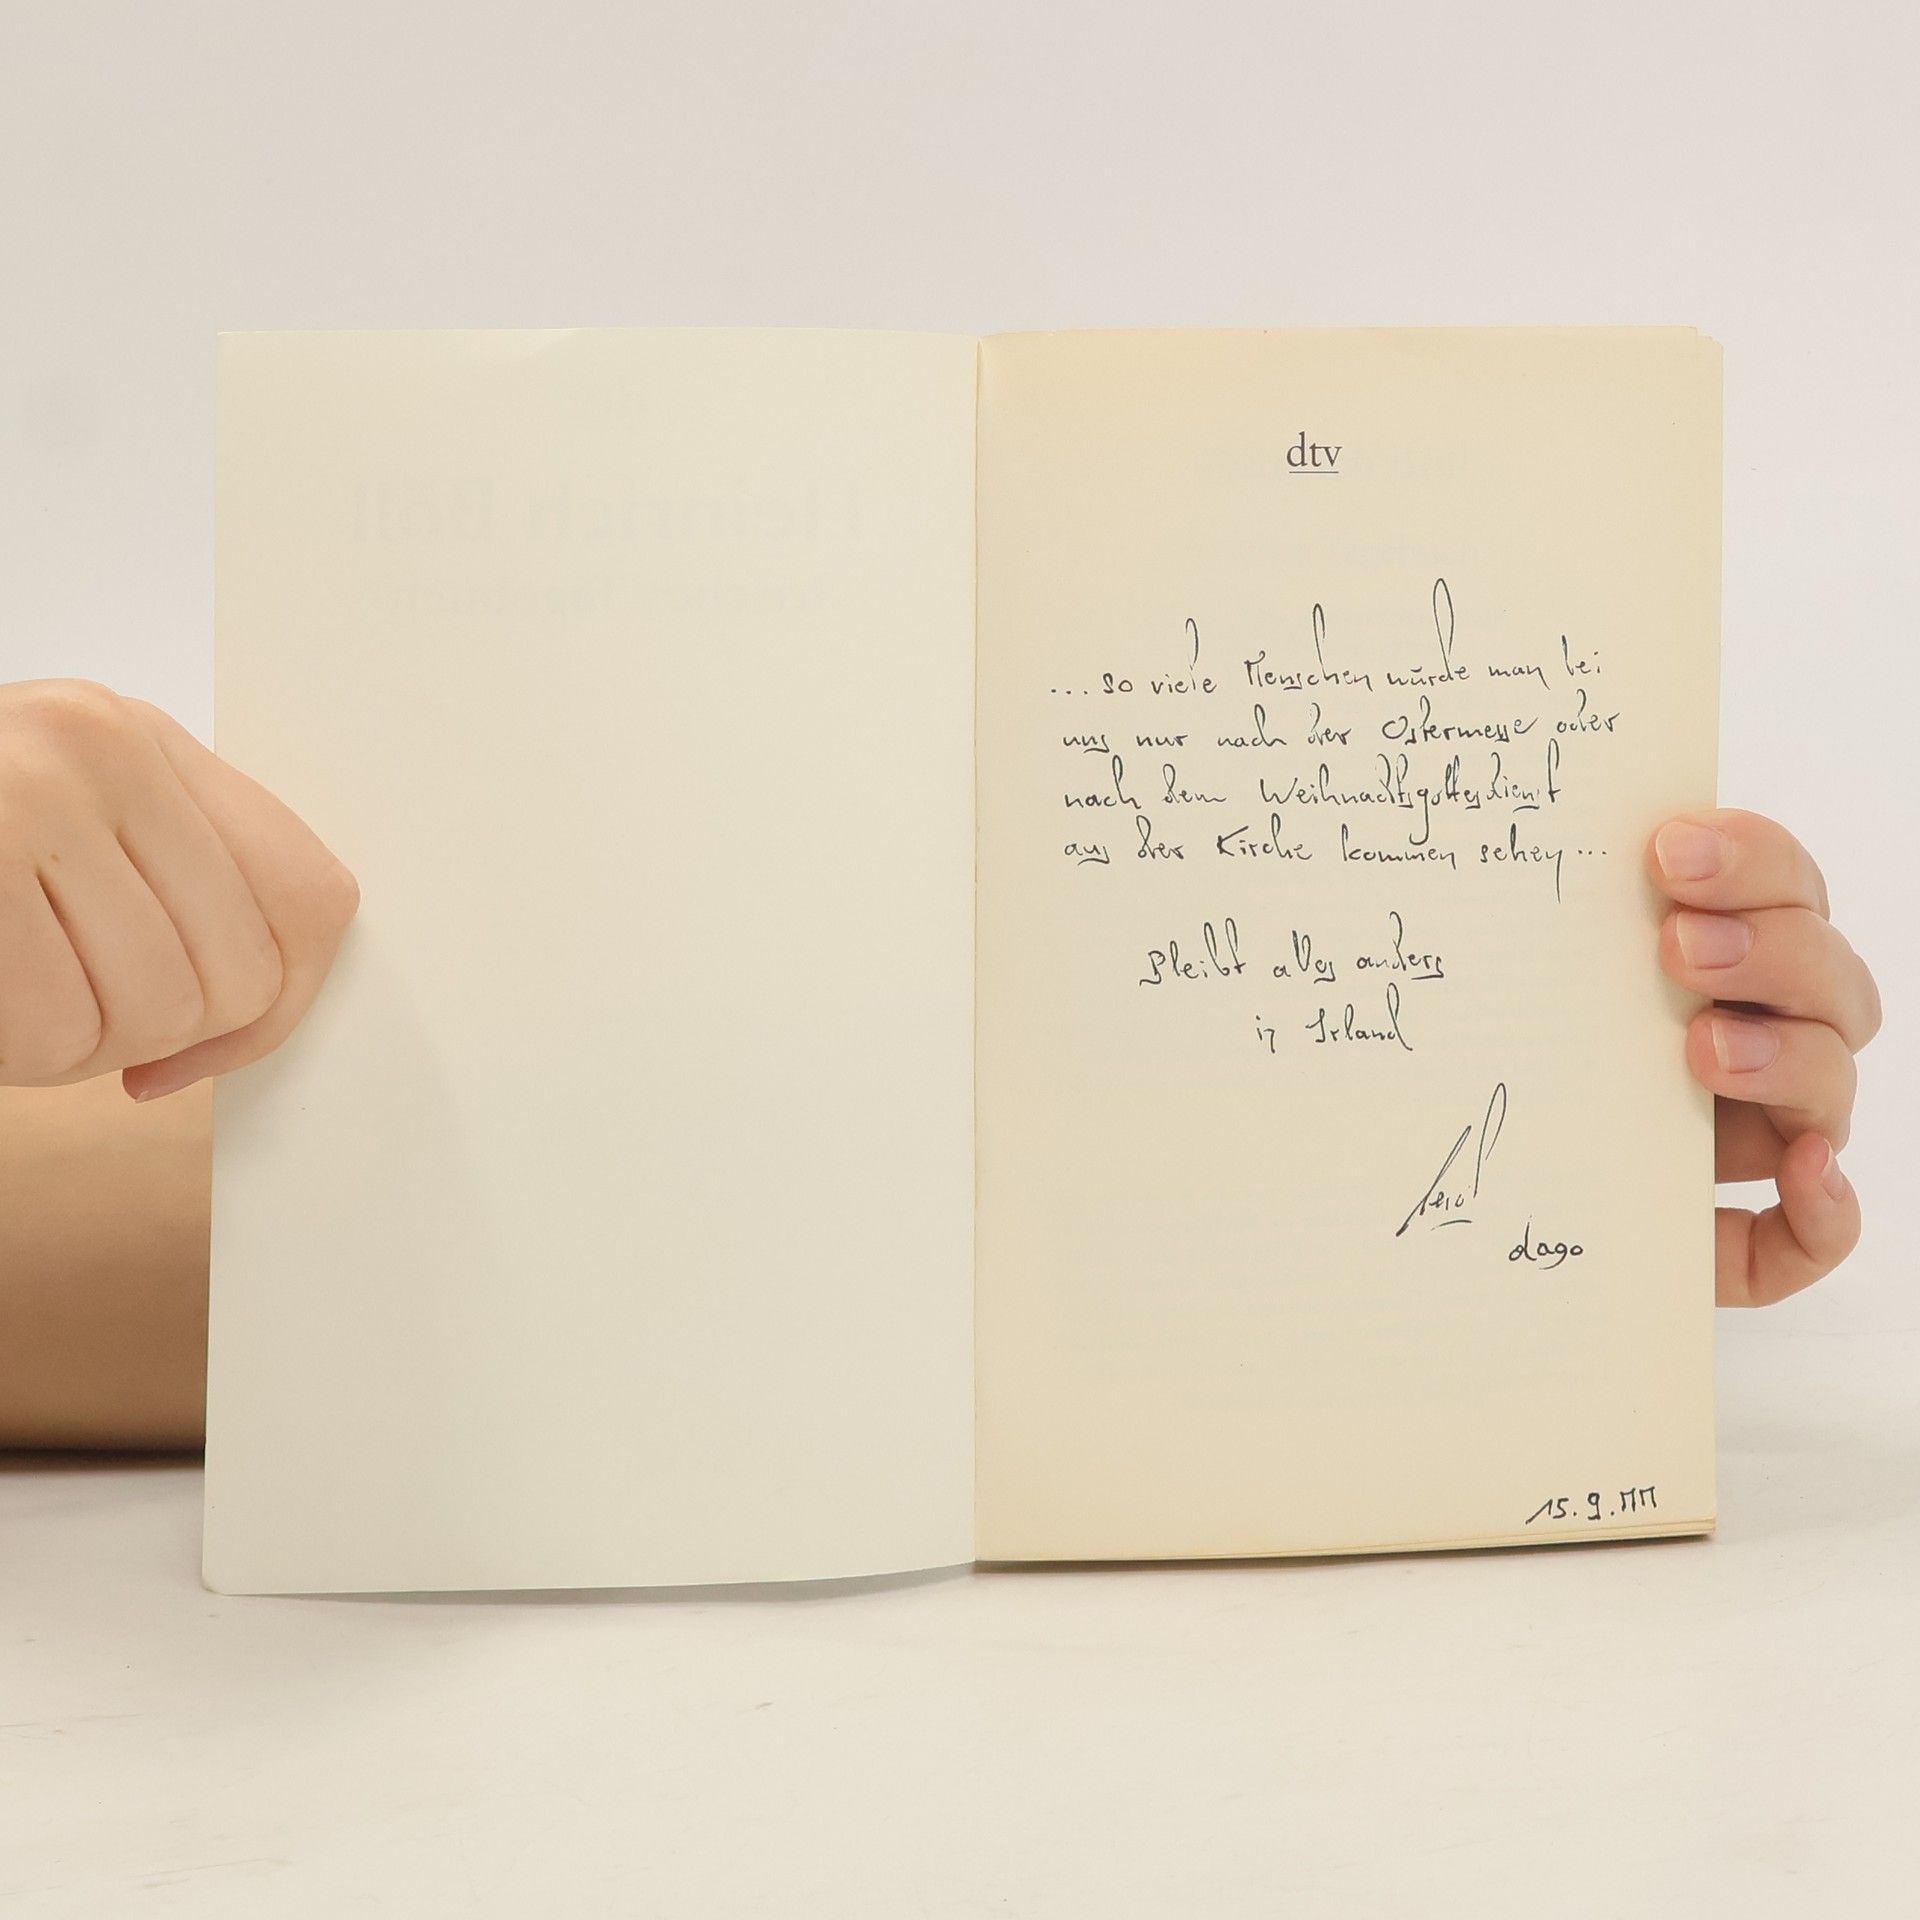 dtv
... so viele Menschen würde man bei
uns nur nach der Ostermesse oder
nach dem Weihnachtsgottesdienst
aus der Kirche kommen sehen ...
Bleibt alles anders
in Irland
dago
15.9.MM